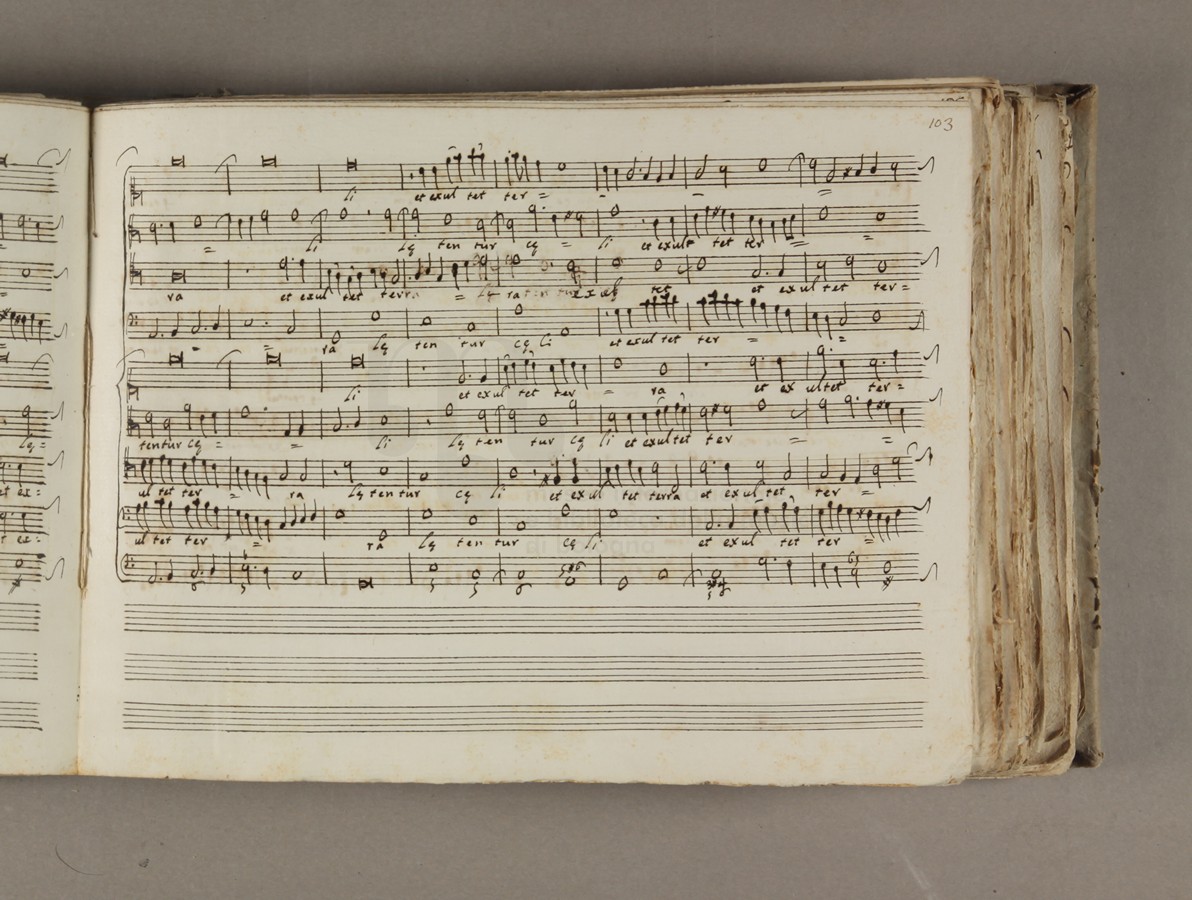 103
li et exul tet ter =
= li lę ten tur cę = li et exult tet ter = =
ra et exul tet terra = tet et exul tet ter =
= = ra lę ten tur cę li et exul tet ter = =
li et exul tet ter = ra et ex ul tet ter =
tentur cę = = li lę ten tur cę li et exultet ter = =
ul tet ter = ra lę ten tur cę li et ex ul tet terra et exul tet ter =
ul tet ter = ra lę ten tur cę li et exul tet ter =